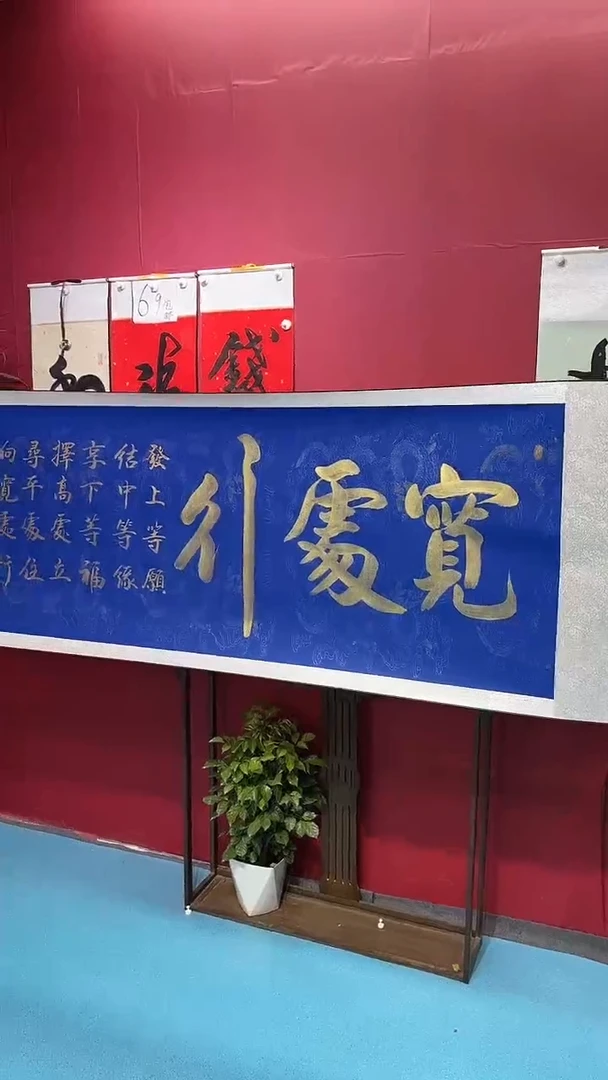 錢
寬處行
發上等願
结中等緣
享下等福
擇高處立
尋平處住
向寬處行